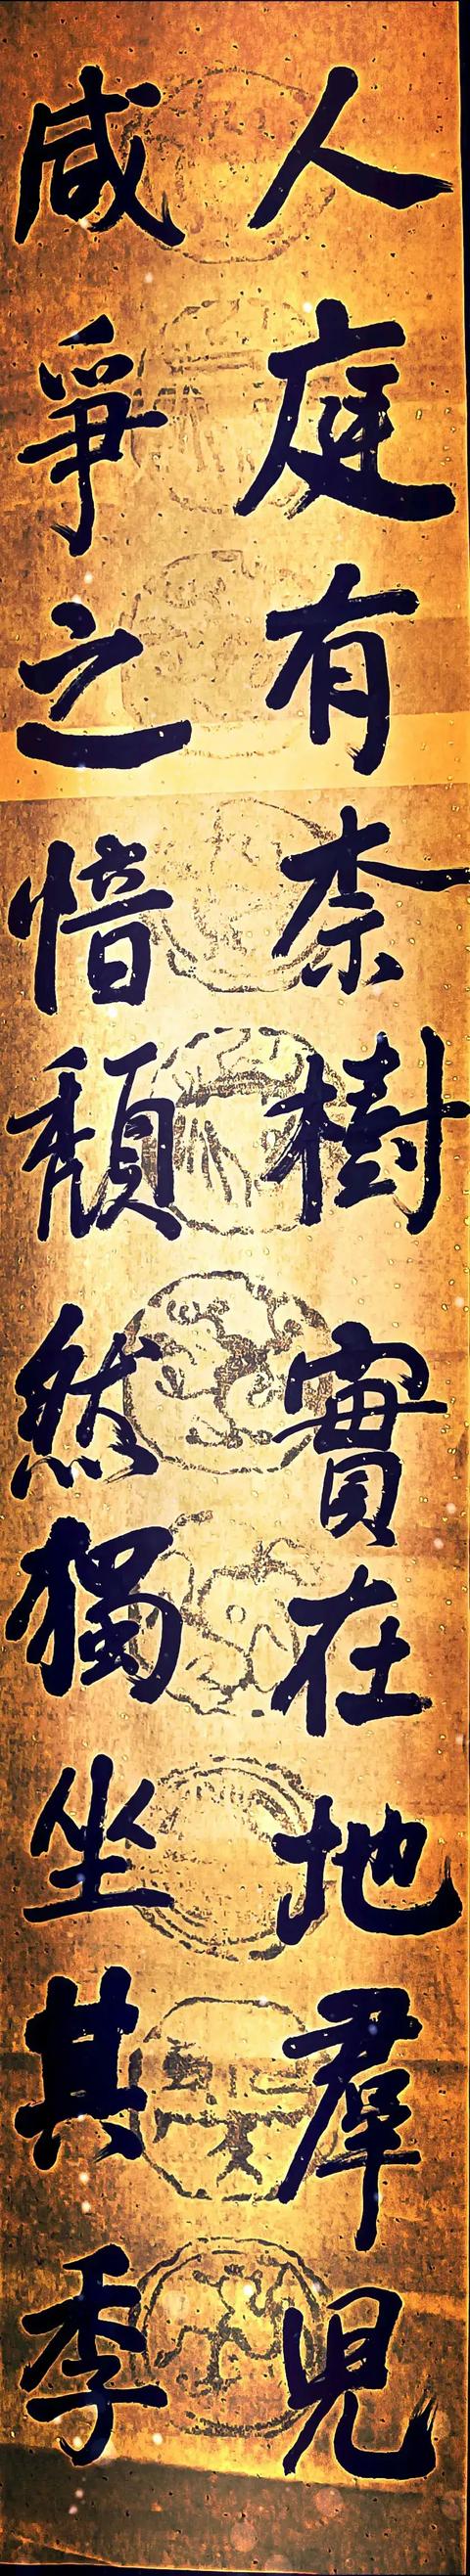 人庭有柰樹實在地羣兒
咸爭之愔頹然獨坐其季